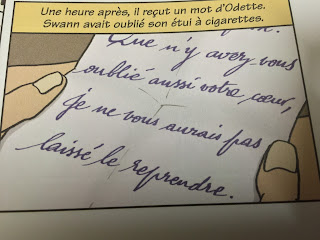 Une heure après, il reçut un mot d'Odette.
Swann avait oublié son étui à cigarettes.
Que n'y avez vous
oublié aussi votre cœur,
je ne vous aurais pas
laissé le reprendre.